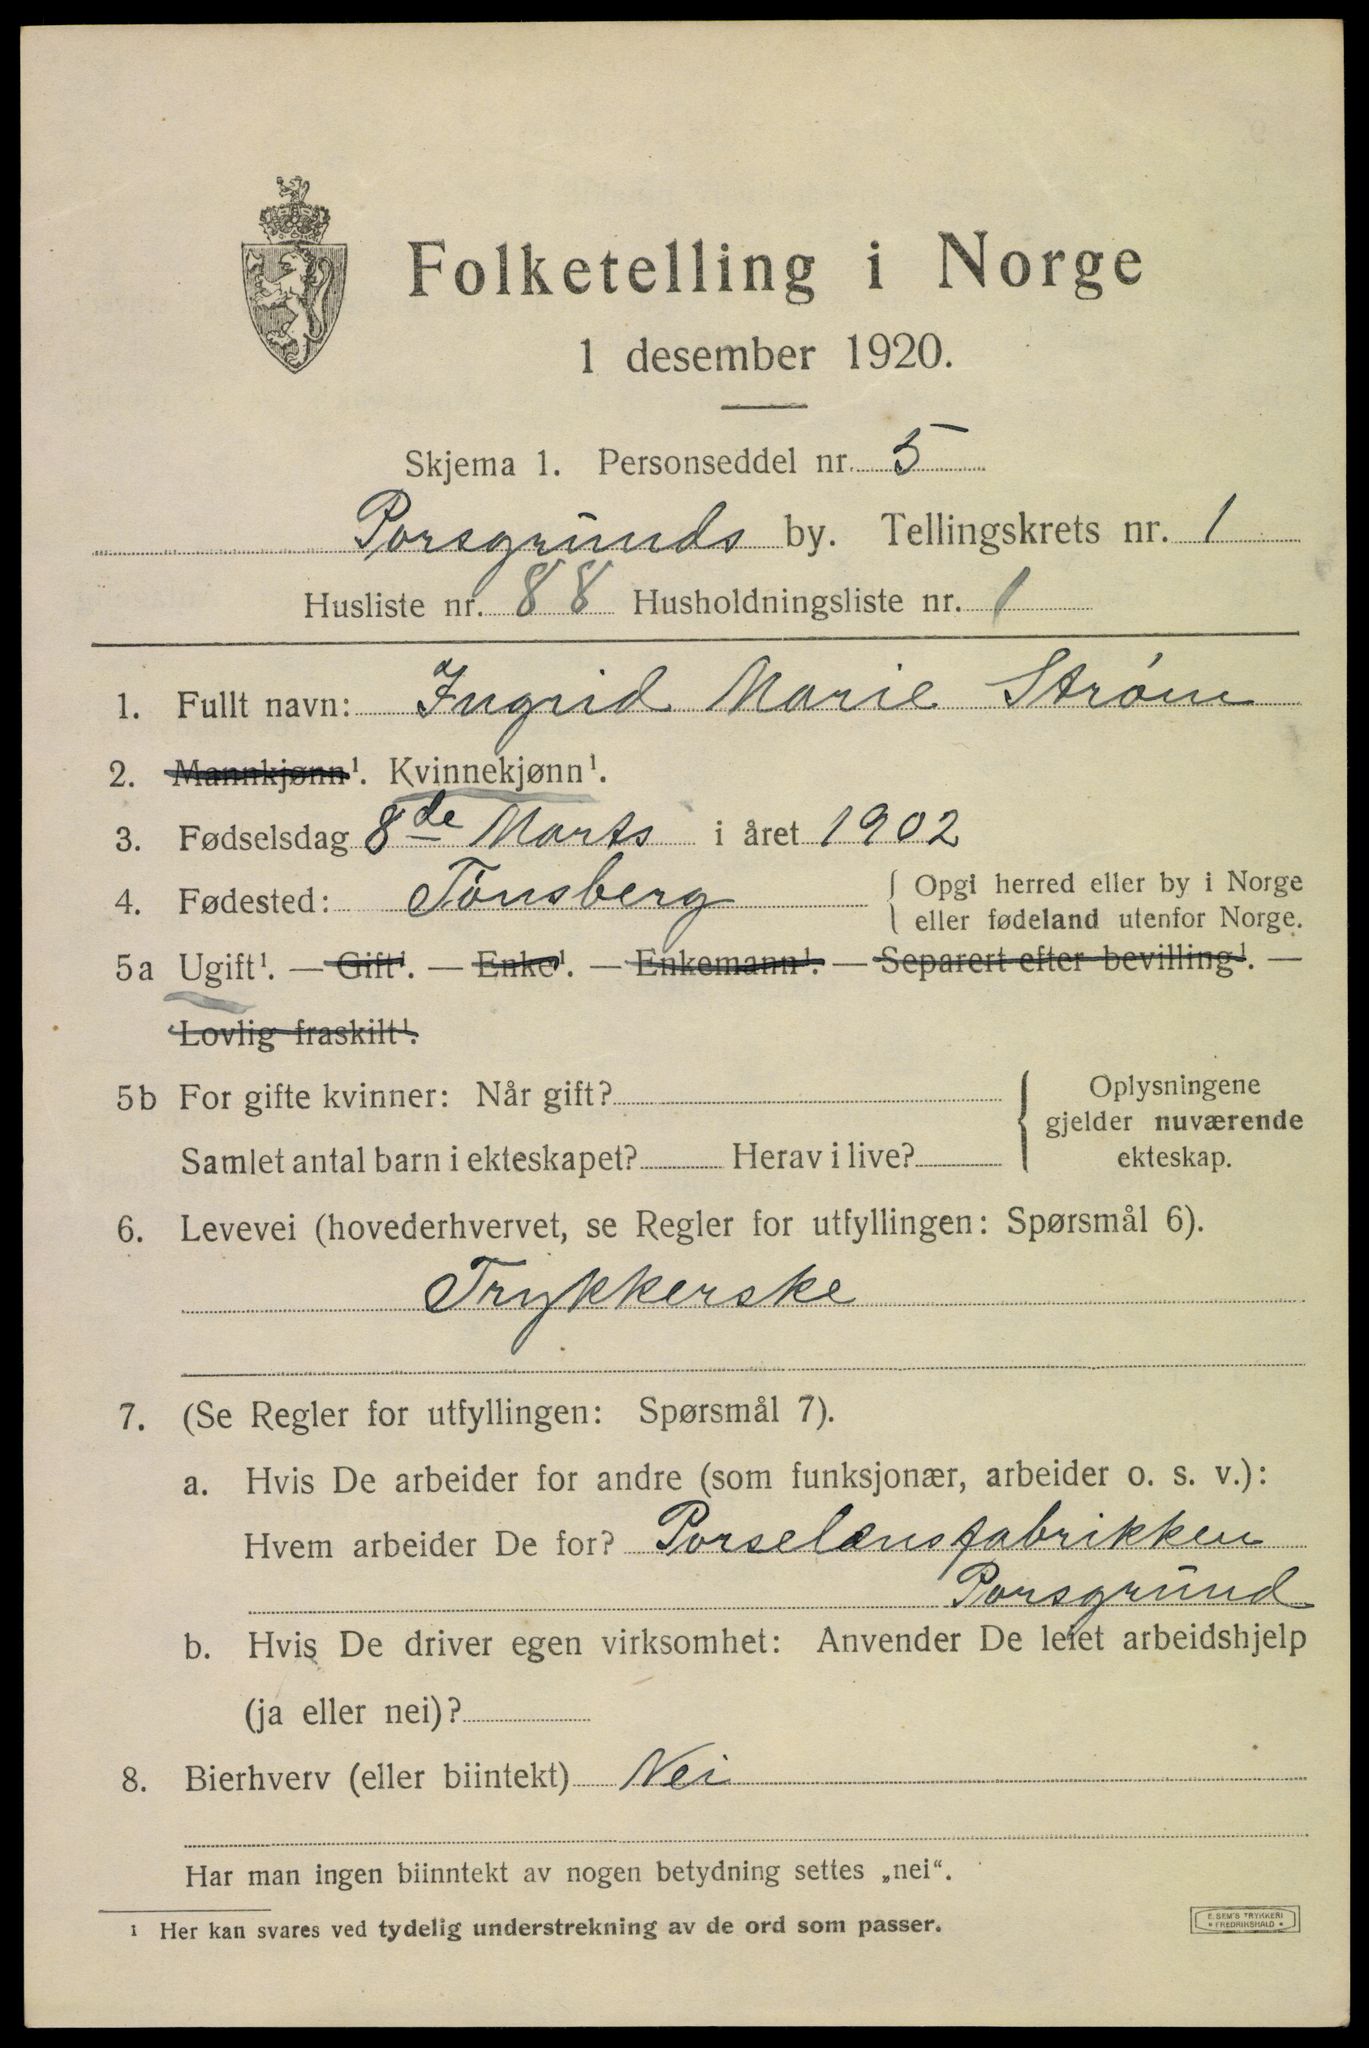 Folketelling i Norge
1 desember 1920.
Skjema 1. Personseddel nr. 5
Porsgrunds by. Tellingskrets nr. 1
Husliste nr. 88 Husholdningsliste nr. 1
1. Fullt navn: Ingrid Marie Strøm
2. Mannkjønn¹. Kvinnekjønn¹.
3. Fødselsdag 8de Marts i året 1902
4. Fødested: Tønsberg { Opgi herred eller by i Norge
eller fødeland utenfor Norge.
5a Ugift¹. — Gift¹. — Enke¹. — Enkemann¹. — Separert efter bevilling¹. —
Lovlig fraskilt¹.
5b For gifte kvinner: Når gift? { Oplysningene
gjelder nuværende
Samlet antal barn i ekteskapet? Herav i live? ekteskap.
6. Levevei (hovederhvervet, se Regler for utfyllingen: Spørsmål 6).
Trykkerske
7. (Se Regler for utfyllingen: Spørsmål 7).
a. Hvis De arbeider for andre (som funksjonær, arbeider o. s. v.):
Hvem arbeider De for? Porselænsfabrikken
Porsgrund
b. Hvis De driver egen virksomhet: Anvender De leiet arbeidshjelp
(ja eller nei)?
8. Bierhverv (eller biintekt) Nei
Har man ingen biinntekt av nogen betydning settes „nei“.
¹ Her kan svares ved tydelig understrekning av de ord som passer.
E. SEM'S TRYKKERI
• FREDRIKSHALD •